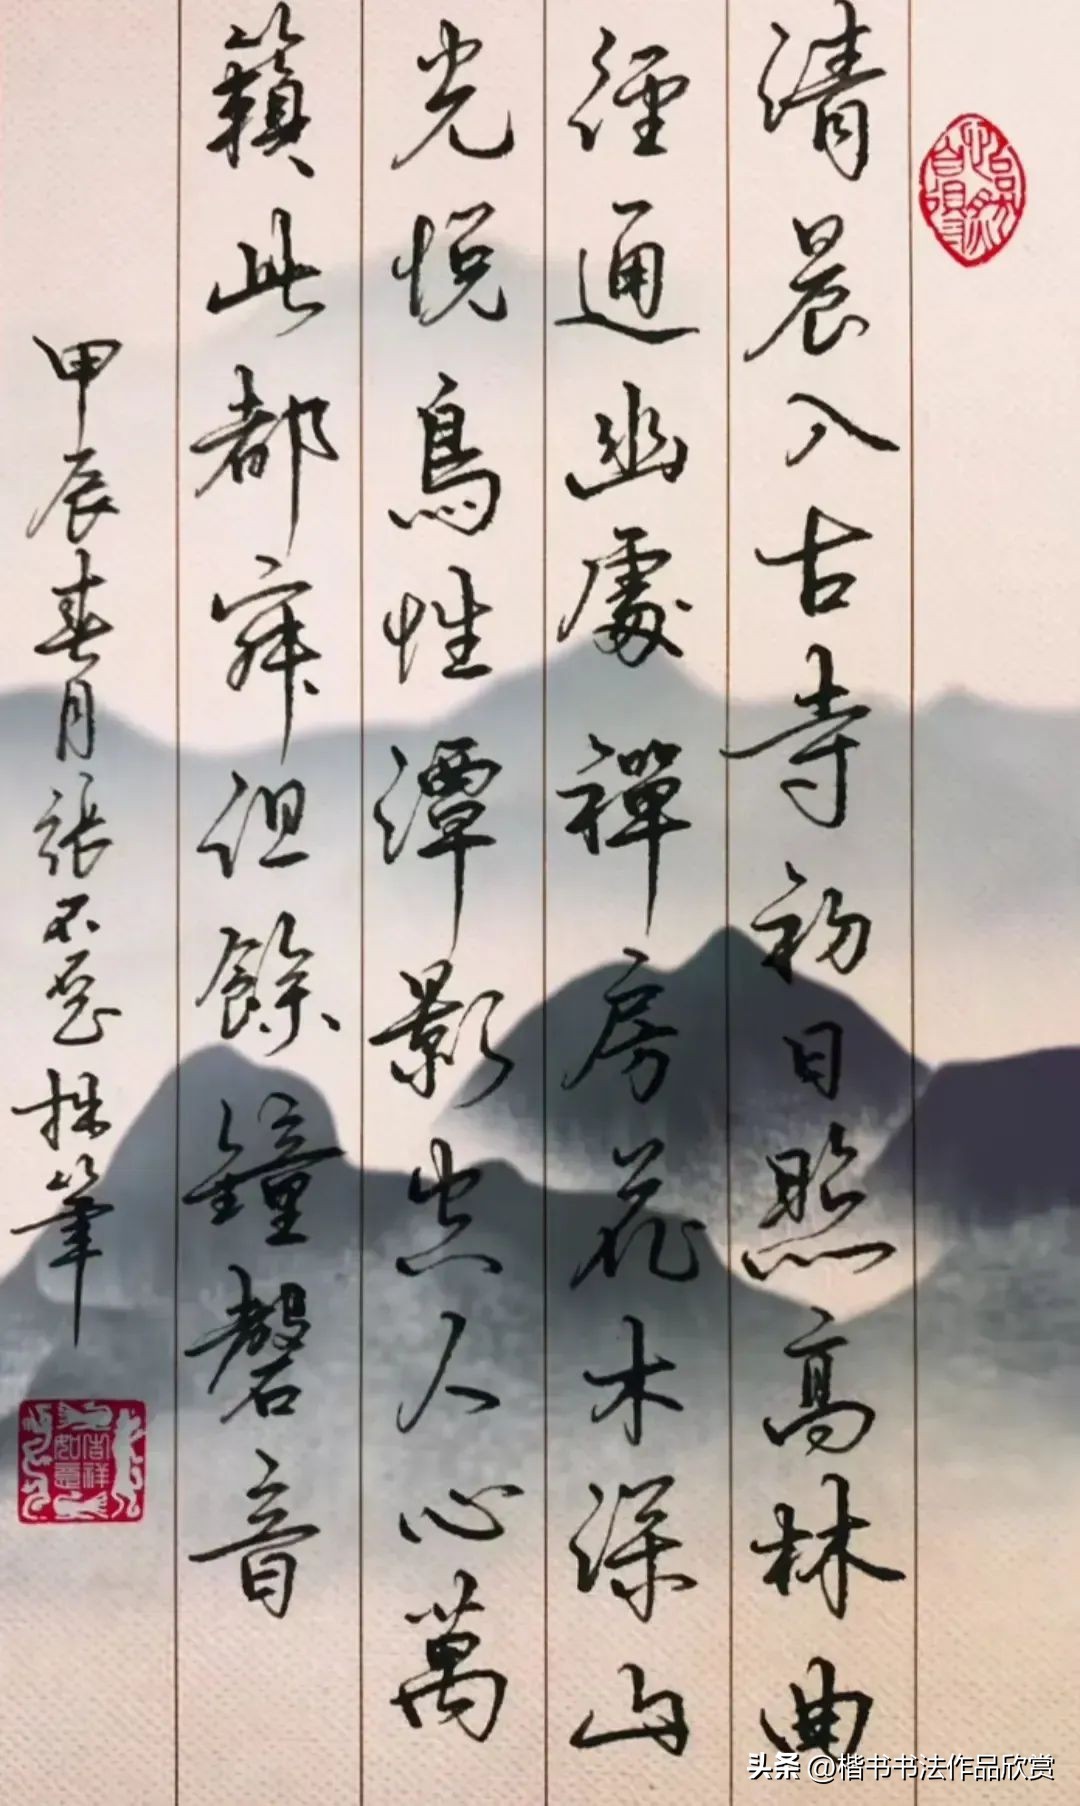 清晨入古寺初日照高林曲
徑通幽處禪房花木深山
光悅鳥性潭影空人心萬
籟此都寂但餘鐘磬音
甲辰春月張不惑執筆
吉祥如意
头条 @楷书书法作品欣赏